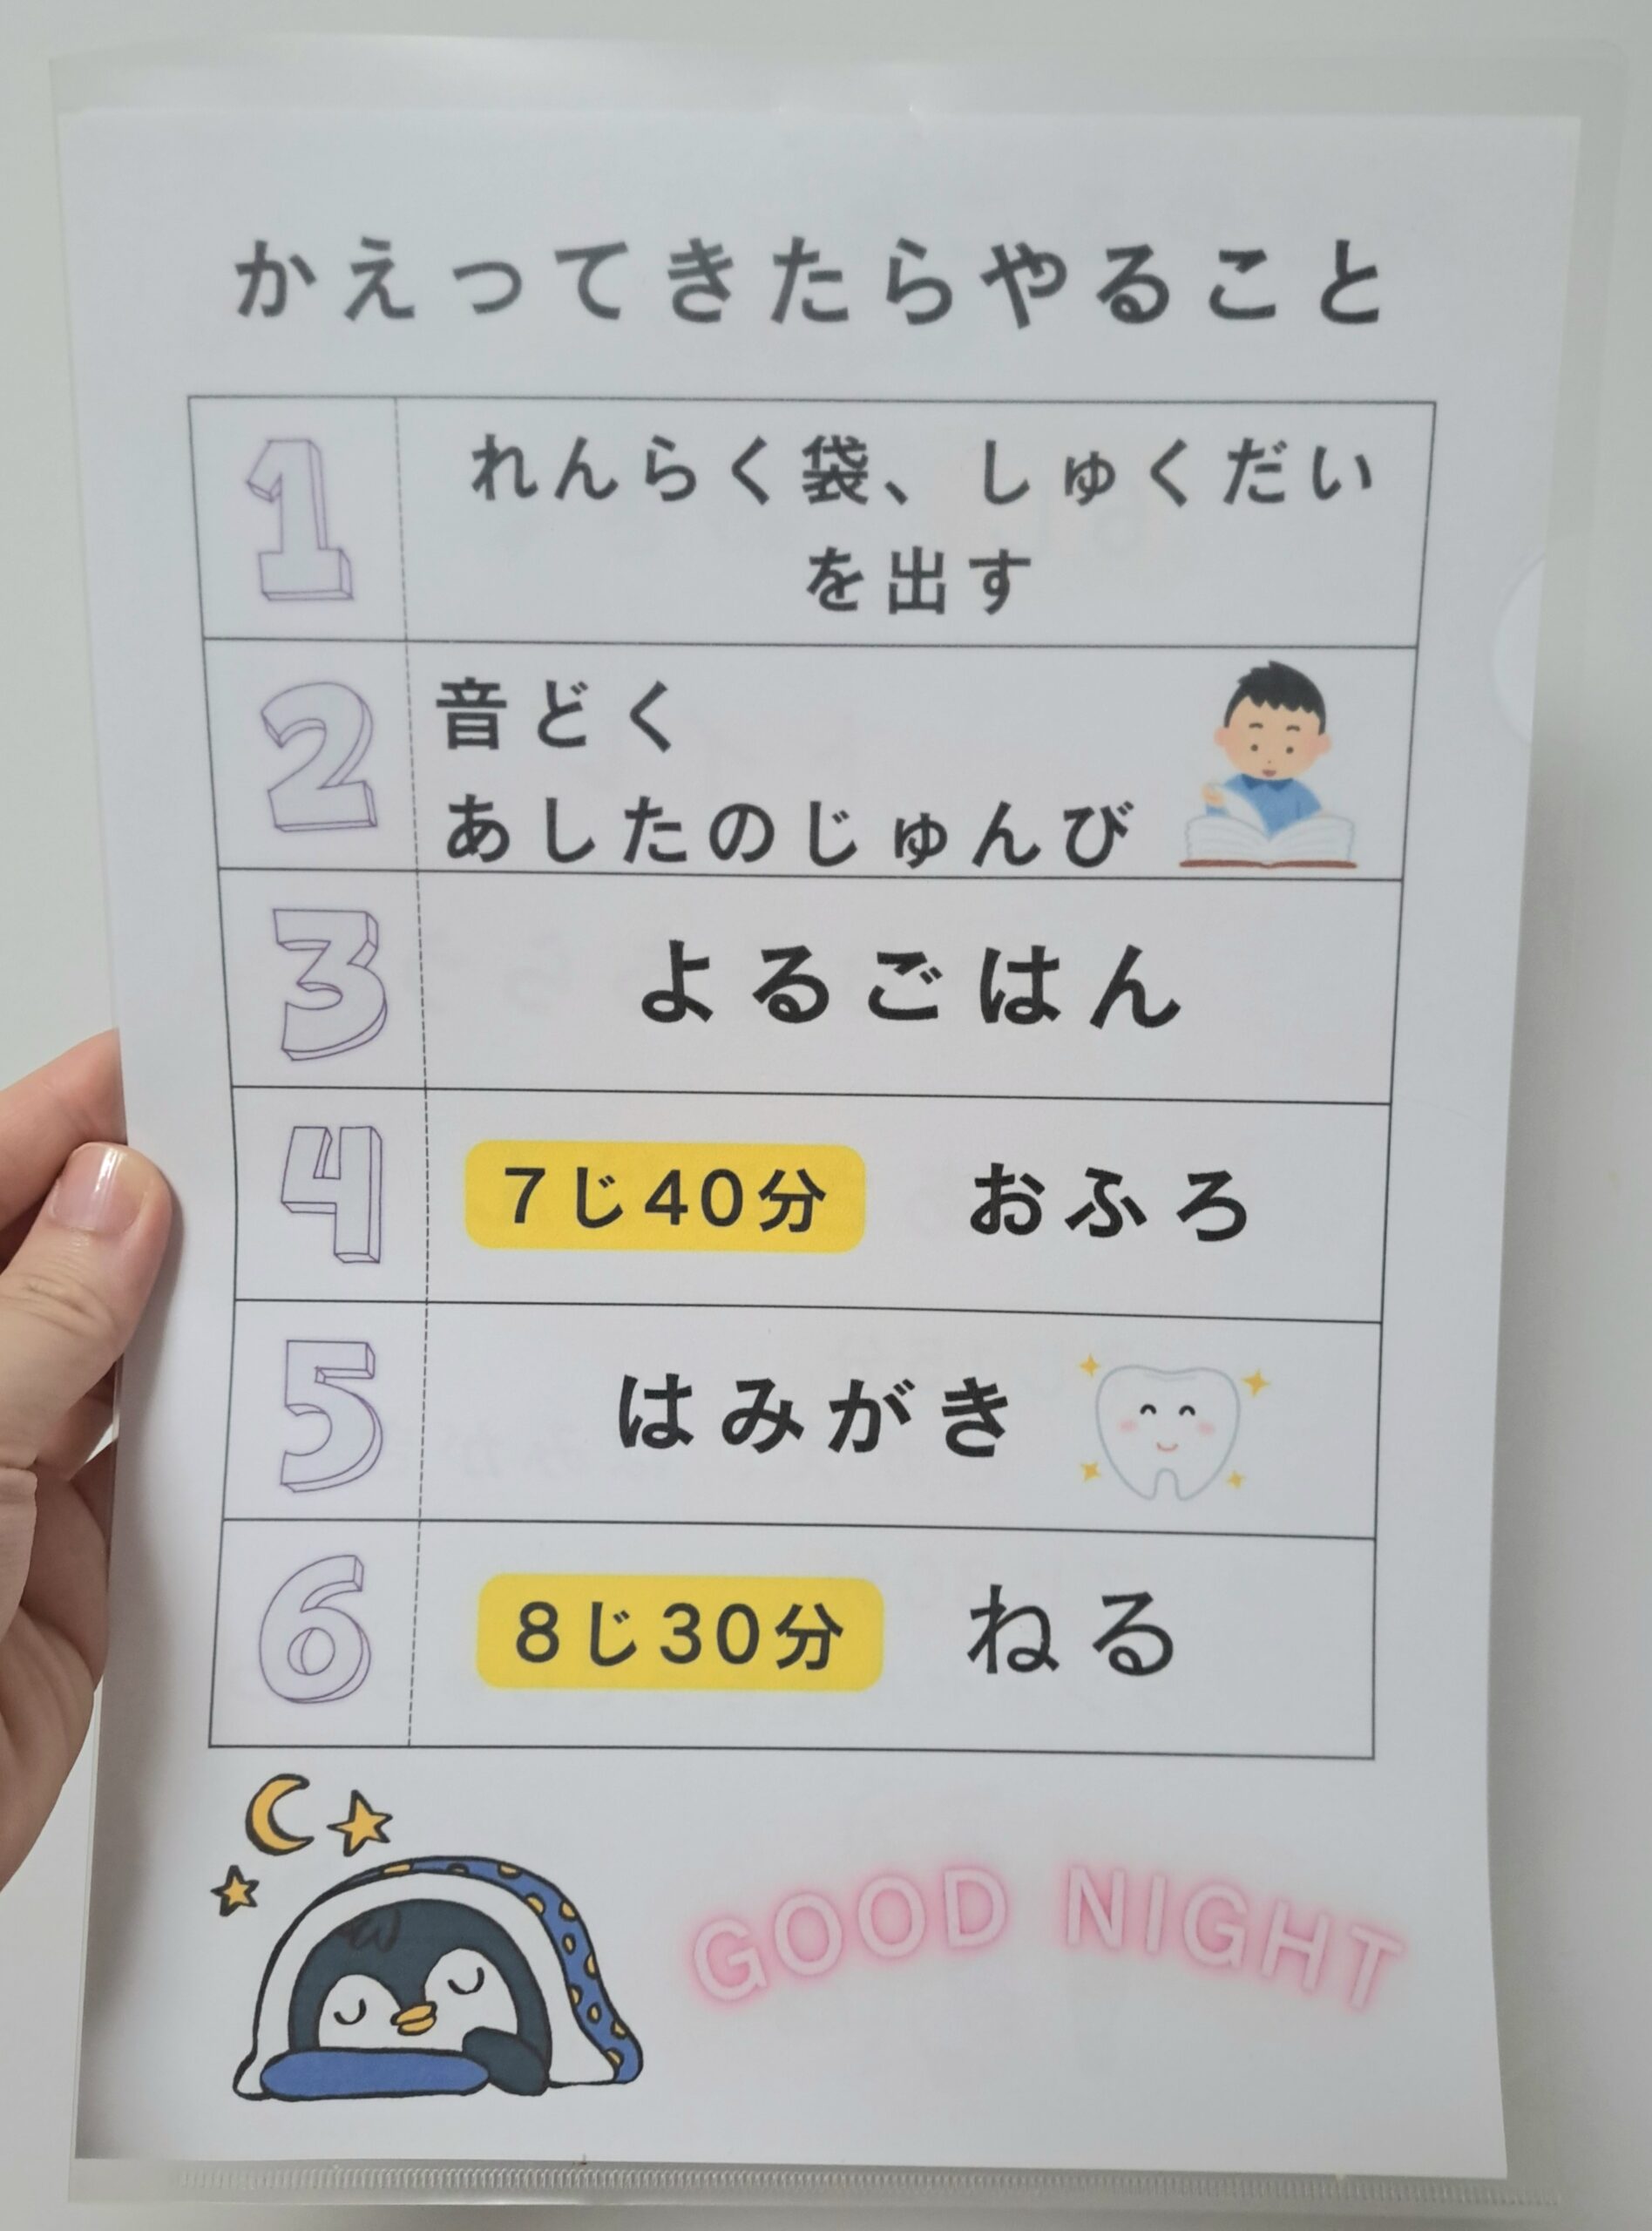 かえってきたらやること
1
れんらく袋、しゅくだい
を出す
2
音どく
あしたのじゅんび
3
よるごはん
4
7じ40分 おふろ
5
はみがき
6
8じ30分 ねる
GOOD NIGHT